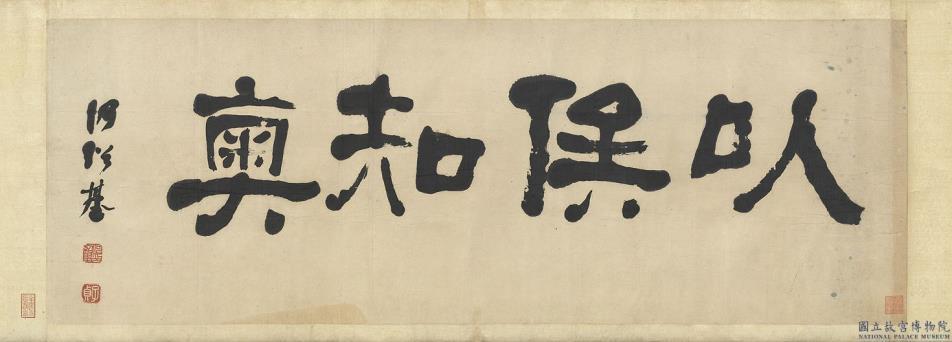 以俟知奧
何紹基
國立故宮博物院
NATIONAL PALACE MUSEUM